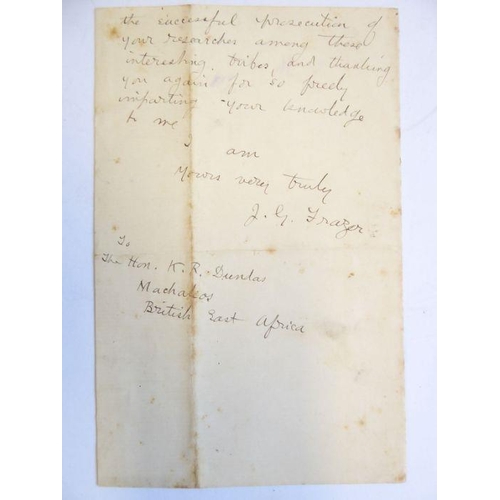 the successful prosecution of
your researches among these
interesting tribes, and thanking
you again for so freely
imparting your knowledge
to me
I
am
Yours very truly
J. G. Frazer
To
The Hon. K. R. Dundas
Machakos
British East Africa